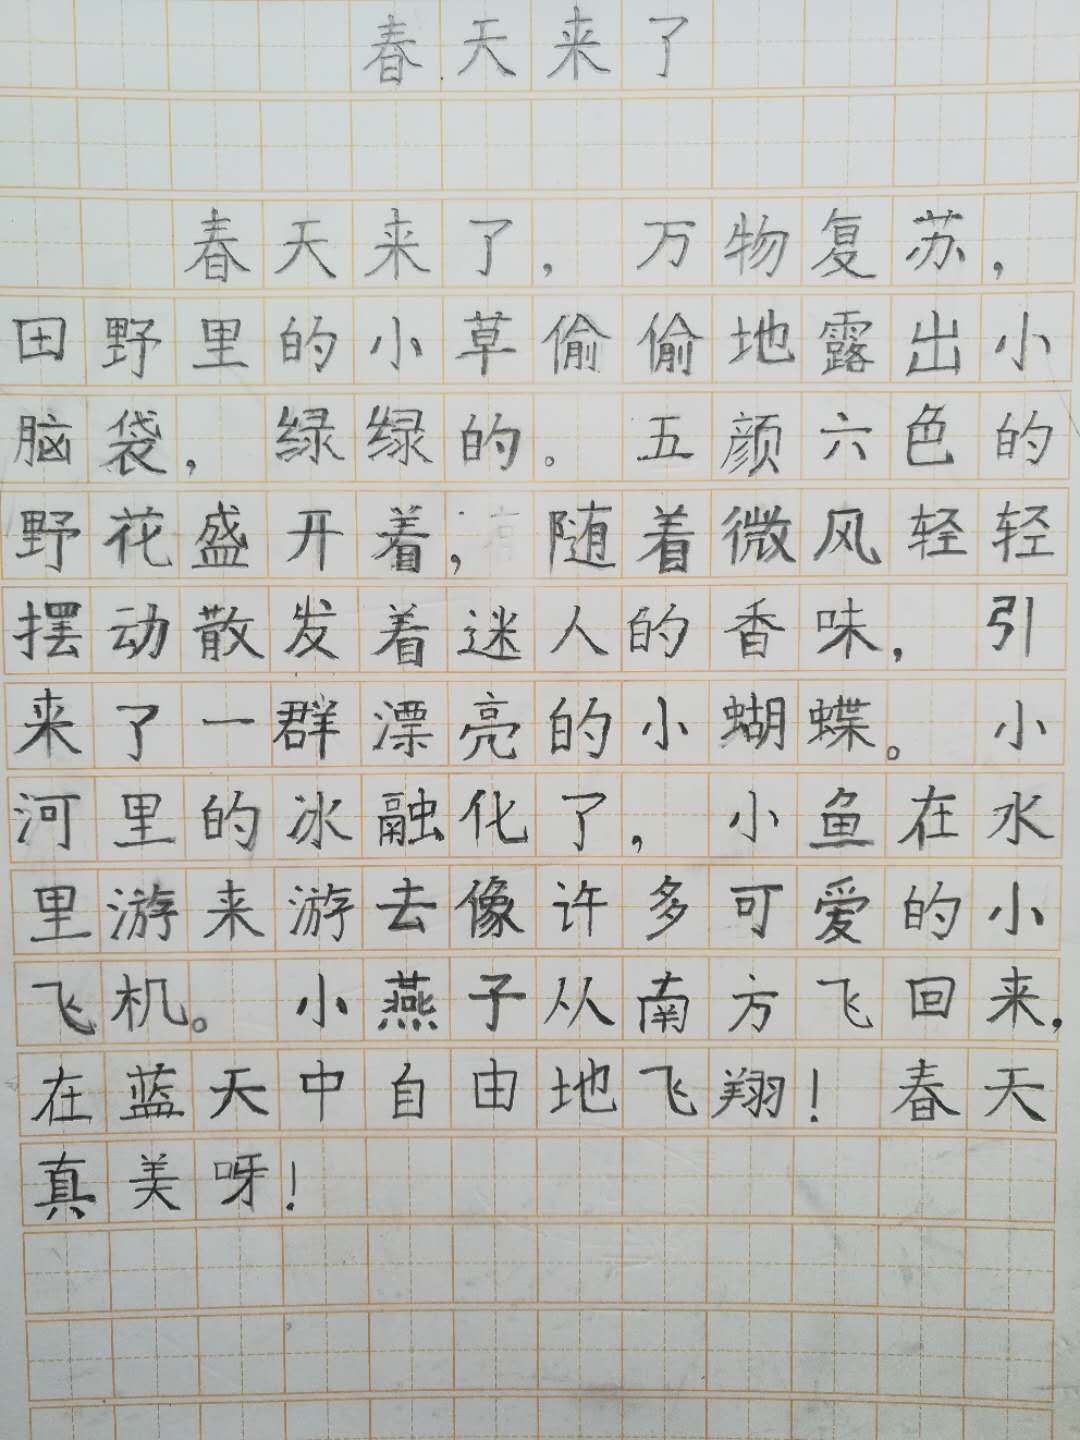 春天来了
春天来了，万物复苏，
田野里的小草偷偷地露出小
脑袋，绿绿的。五颜六色的
野花盛开着，随着微风轻轻
摆动散发着迷人的香味，引
来了一群漂亮的小蝴蝶。小
河里的冰融化了，小鱼在水
里游来游去像许多可爱的小
飞机。小燕子从南方飞回来，
在蓝天中自由地飞翔！春天
真美呀！